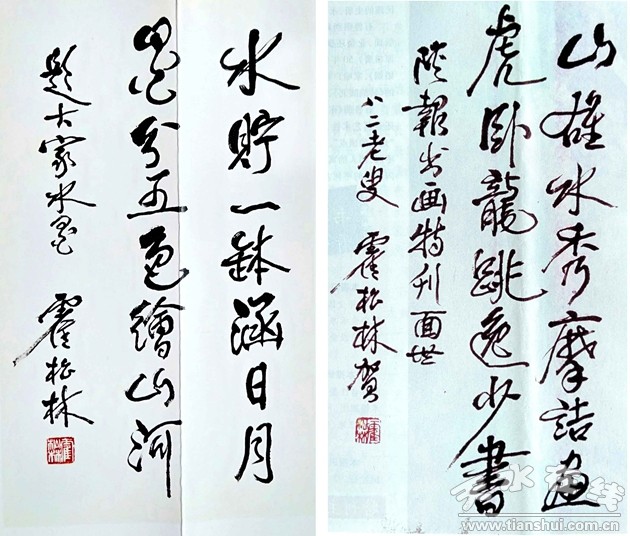 水貯一鉢涵日月
墨分五色繪山河
题大家水墨
霍松林
霍松林
山雄水秀摩詰畫
虎卧龍跳逸少書
陕報书画特刊面世
八二老叟 霍松林贺
霍松林
天水在线
www.tianshui.com.cn